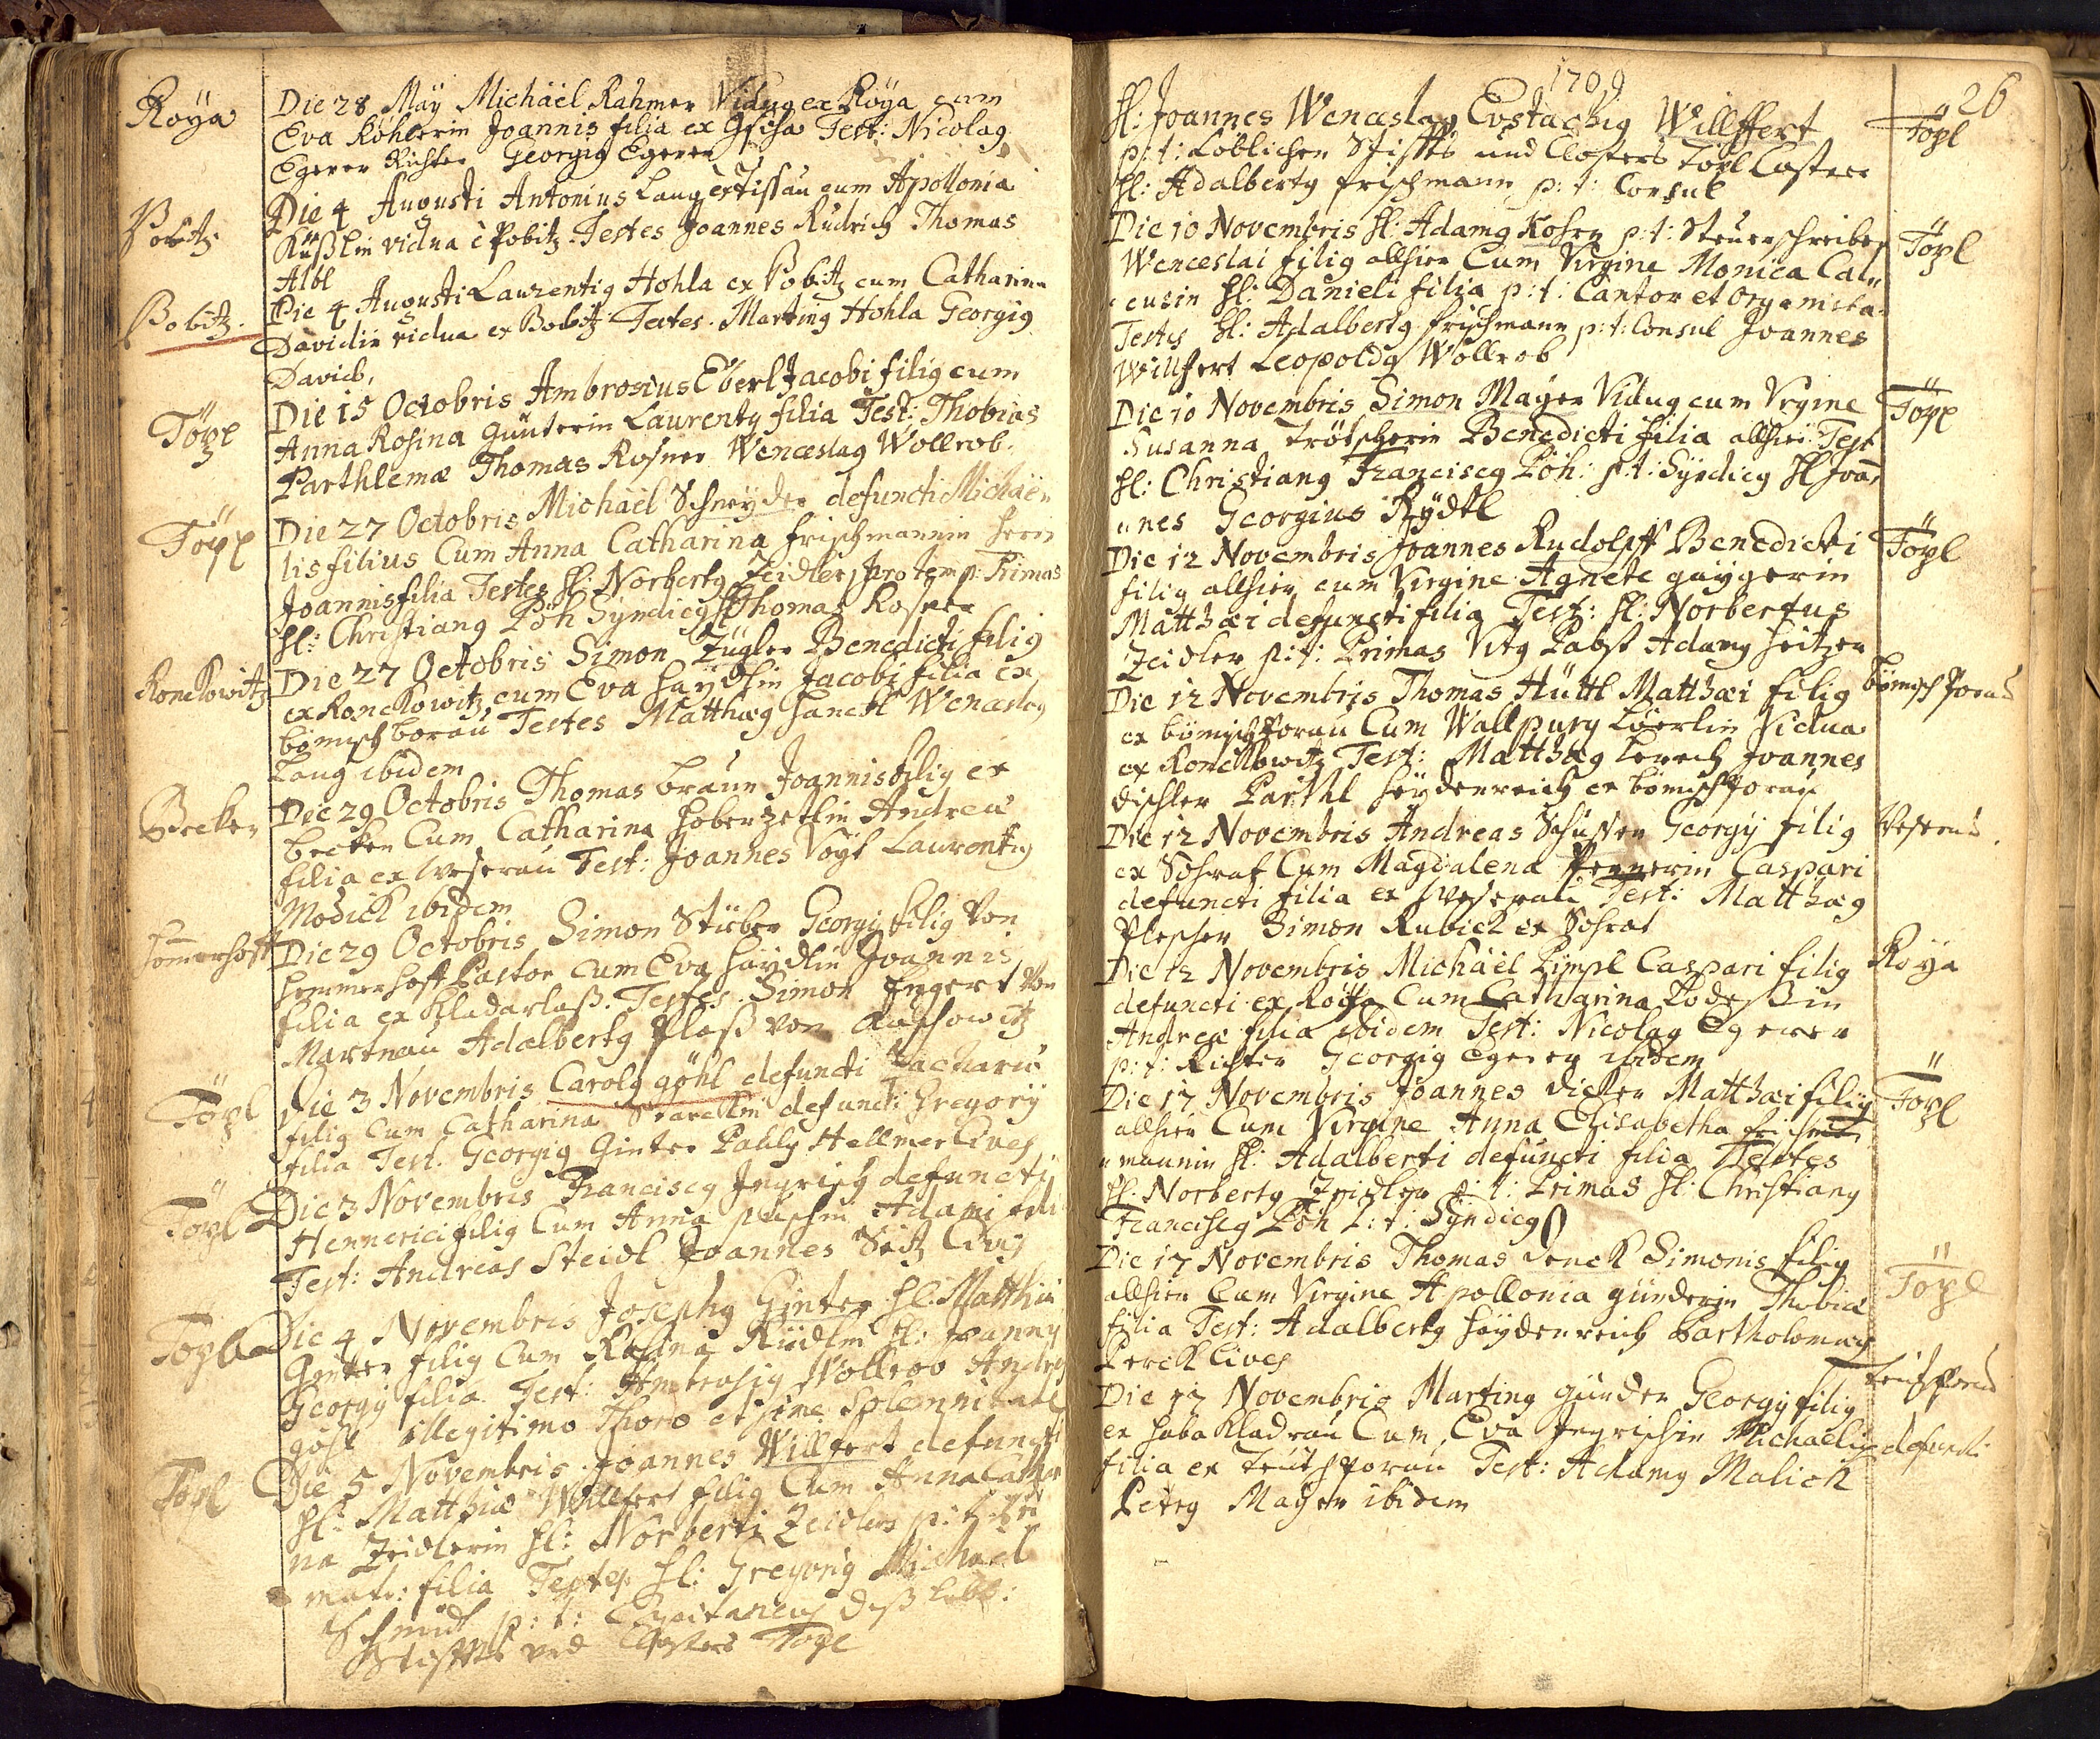 Roÿa
Die 28 Maÿ Michaël Rahmer Viduus ex Roÿa cum
Eva Köhlerin Joannis filia ex Test: Nicolaus
Egerer Richter Georgius Egerer
Pobitz
Die 4 Augusti Antonius Lang ex Tissau cum Apollonia
vidua è Pobitz. Testes Joannes Rudrich Thomas
Albl
Pobitz.
Die 4 Augusti Laurentius Hohla ex Pobitz cum Catharina
Davidin vidua ex Pobitz Testes. Martinus Hohla Georgius
David,
Töpl
Die 15 Octobris Ambrosius Eberl Jacobi filius cum
Anna Rosina Günterin Laurenty filia Test: Thobias
Parthlemæ Thomas Rosner Wenceslaus Wollrob.
Töpl
Die 27 Octobris Michaël Schneÿder defuncti Michaë"
lis filius Cum Anna Catharina Frischmannin Herrn
Joannis filia Testes H: Norbertus Zeidler pro temp: Primas
H: Christianus Pöh Syndicus Thomas Rosner
Ronckowitz
Die 27 Octobris Simon Zügler Benedicti filius
ex Ronckowitz cum Eva Haÿdlin Jacobi filia ex
bömisch borau Testes Matthæus Hanckl Wenceslaus
Lang ibidem
Becken
Die 29 Octobris Thomas braun Joannis filius ex
becken Cum Catharina Andreæ
filia ex Weserau Test: Joannes Vogl Laurentius
Modick ibidem
Hommerhoff
Die 29 Octobris Simon Stüber Georgÿ filius von
Hommerhoff Pastor Cum Eva Haÿdlin Joannis
filia ex Kladarlaß. Testes. Simon von
Martnau Adalbertus Ploß von
Töpl
Die 3 Novembris Carolus göhl defuncti Zachariæ
filius Cum Catharina defuncti Gregorÿ
filia Test. Georgius Ginter Paulus Hellmer Cives
Töpl
Die 3 Novembris Franciscus Ingrisch defuncti
Hennerici filius Cum Anna Adami filia
Test: Andreas Steidl Joannes Seitz Cives
Töpl
Die 4 Novembris Josephus Ginter H: Matthiæ
Ginter filius Cum Rosina Rüdlin H: Joannis
Georgÿ filia Test: Ambrosius Wollrob Andreas
göhl illegitimo Thoro et sine Solemnitate
Töpl
Die 5 Novembris Joannes Willfert defuncti
H: Matthiæ Willfert filius Cum Anna Catha
na Zeidlerin H: Norberti Zeidlers p: t: Pri
matis: filia Testes H: Gregorius Michael
Schmidt p: t: Capitaneus deß Löbl:
Stiffts und Closters Töpl
1709
26
H: Joannes Wenceslaus Eustachius Willffert
p: t: Löblichen Stiffts und Closters Töpl Castner
H: Adalbertus Frischmann p: t: Consul
Töpl
Die 10 Novembris H: Adamus Rohrer p: t: Steuerschreiber
Wenceslai filius allhier Cum Virgine Monica Cal"
cusin H: Danieli filia p: t: Cantor et Organista
Testes H: Adalbertus Frischmann p: t: Consul Joannes
Willfert Leopoldus Wollrob
Töpl
Die 10 Novembris Simon Mayer Viduus cum Vrgine
Susanna Trötscherin Benedicti filia allhier Test
H: Christianus Franciscus Pöh: p: t: Sÿndicus H Joan"
nes Georgius Rÿdtl
Töpl
Die 12 Novembris Joannes Rudolpff Benedicti
filius allhier cum Virgine Agnete gaÿgerin
Matthæi defuncti filia Test: H: Norbertus
Zeidler p: t: Primas Vitus Pabst Adamus
Töpl
Die 12 Novembris Thomas Hüttl Matthæi filius
ex bömisch porau Cum Wallpurg Löerlin Vidua
ex Ronckowitz Test: Matthæus Lerch Joannes
dischler Parthl Heÿdenreich ex bömisch porau
bömisch porau
Die 12 Novembris Andreas Schuster Georgÿ filius
ex Schraf Cum Magdalena Pennerin Caspari
defuncti filia ex Weserau Test: Matthæus
Plescher Simon Rubick ex Schraf
Weserau
Die 12 Novembris Michaël Pimpl Caspari filius
defuncti ex Roÿa Cum Catharina Lodeßin
Andreæ filia ibidem Test: Nicolaus Egerer
p: t: Richter Georgius Egerer ibidem
Roÿa
Die 17 Novembris Joannes dietzer Matthæi filius
allhier Cum Virgine Anna Elisabetha Frisch"
mannin H: Adalberti defuncti filia Testes
H: Norbertus Zeidler p: t: Primas H: Christianus
Franciscus Pöh p: t: Sÿndicus
Töpl
Die 17 Novembris Thomas denck Simonis filius
allhier Cum Virgine Apollonia günderin Thobiæ
filia Test: Adalbertus Haÿdenreich Bartholomæus
Perck Cives
Töpl
Die 17 Novembris Martinus günder Georgÿ filius
ex haba Kladrau Cum Eva Ingrischin Michaelis defuncti
filia ex Teutsch porau Test: Adamus Malick
Petrus Mayer ibidem
Teutsch porau